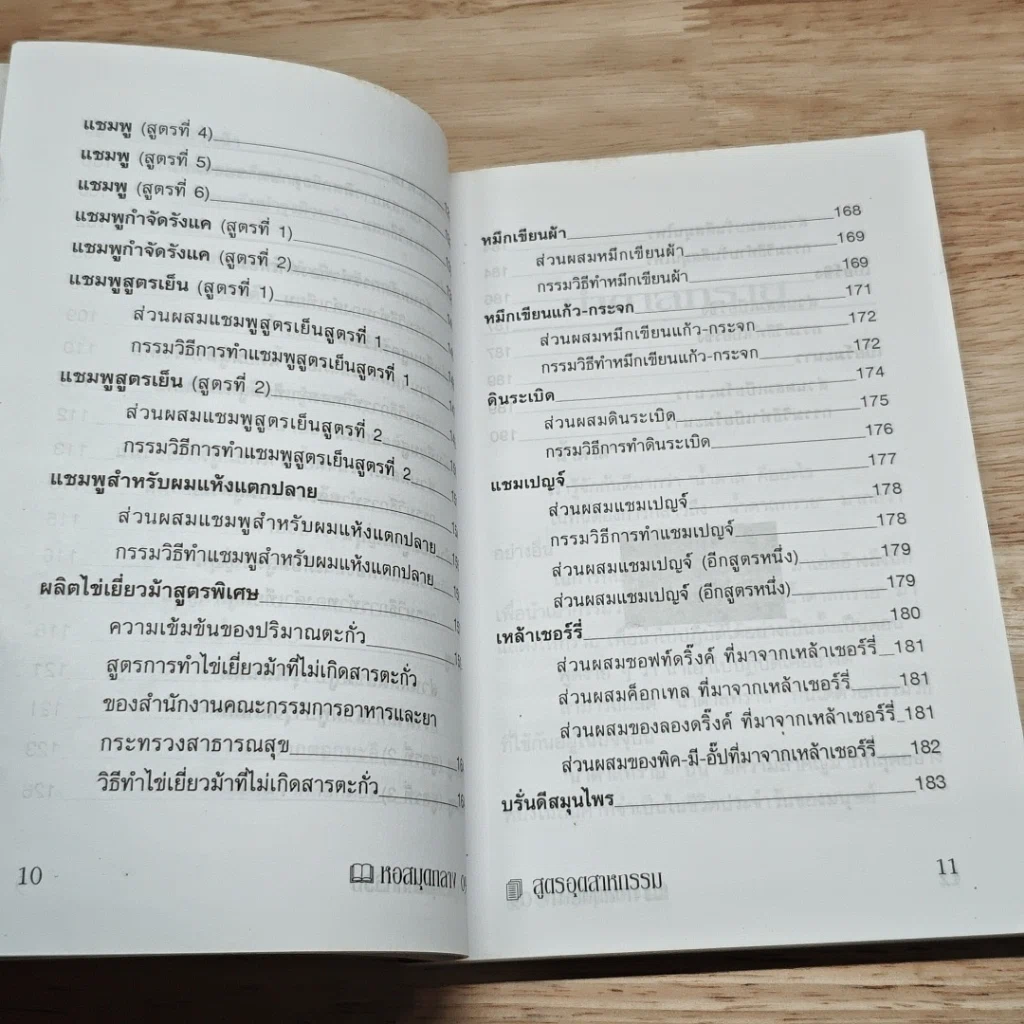 แชมพู (สูตรที่ 4)
แชมพู (สูตรที่ 5)
แชมพู (สูตรที่ 6)
แชมพูกำจัดรังแค (สูตรที่ 1)
แชมพูกำจัดรังแค (สูตรที่ 2)
แชมพูสูตรเย็น (สูตรที่ 1)
ส่วนผสมแชมพูสูตรเย็นสูตรที่ 1
กรรมวิธีการทำแชมพูสูตรเย็นสูตรที่ 1
แชมพูสูตรเย็น (สูตรที่ 2)
ส่วนผสมแชมพูสูตรเย็นสูตรที่ 2
กรรมวิธีการทำแชมพูสูตรเย็นสูตรที่ 2
แชมพูสำหรับผมแห้งแตกปลาย
ส่วนผสมแชมพูสำหรับผมแห้งแตกปลาย
กรรมวิธีทำแชมพูสำหรับผมแห้งแตกปลาย
ผลิตไข่เยี่ยวม้าสูตรพิเศษ
ความเข้มข้นของปริมาณตะกั่ว
สูตรการทำไข่เยี่ยวม้าที่ไม่เกิดสารตะกั่ว
ของสำนักงานคณะกรรมการอาหารและยา
กระทรวงสาธารณสุข
วิธีทำไข่เยี่ยวม้าที่ไม่เกิดสารตะกั่ว
10 หอสมุดกลาง
หมึกเขียนผ้า 168
ส่วนผสมหมึกเขียนผ้า 169
กรรมวิธีทำหมึกเขียนผ้า 169
หมึกเขียนแก้ว-กระจก 171
ส่วนผสมหมึกเขียนแก้ว-กระจก 172
กรรมวิธีทำหมึกเขียนแก้ว-กระจก 172
ดินระเบิด 174
ส่วนผสมดินระเบิด 175
กรรมวิธีการทำดินระเบิด 176
แชมเปญจ์ 177
ส่วนผสมแชมเปญจ์ 178
กรรมวิธีการทำแชมเปญจ์ 178
ส่วนผสมแชมเปญจ์ (อีกสูตรหนึ่ง) 179
ส่วนผสมแชมเปญจ์ (อีกสูตรหนึ่ง) 179
เหล้าเชอร์รี่ 180
ส่วนผสมซอฟท์ดริ๊งค์ ที่มาจากเหล้าเชอร์รี่ 181
ส่วนผสมค็อกเทล ที่มาจากเหล้าเชอร์รี่ 181
ส่วนผสมของลองดริ๊งค์ ที่มาจากเหล้าเชอร์รี่ 181
ส่วนผสมของพิค-มี-อั๊ปที่มาจากเหล้าเชอร์รี่ 182
บรั่นดีสมุนไพร 183
สูตรอุตสาหกรรม 11